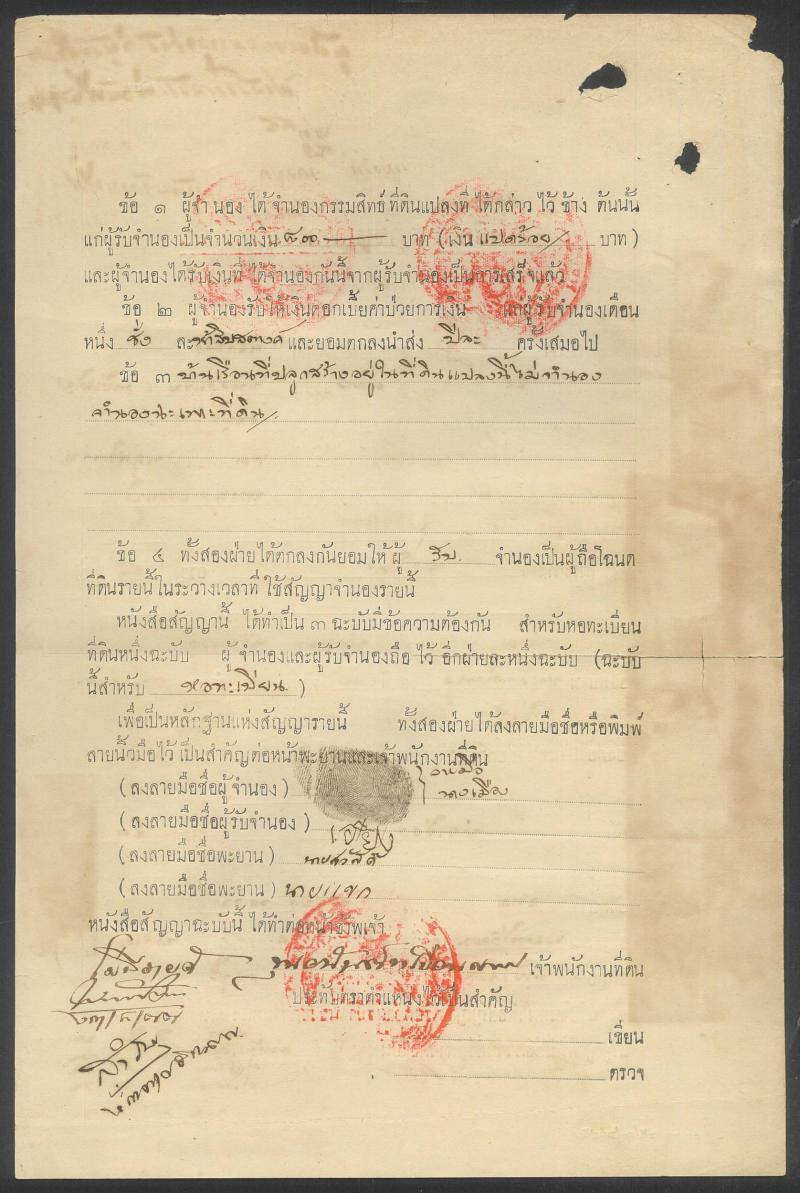 ข้อ ๑ ผู้จำนองได้จำนองกรรมสิทธ์ที่ดินแปลงที่ได้กล่าวไว้ข้างต้นนั้น
แก่ผู้รับจำนองเป็นจำนวนเงิน ๘๐๐ บาท (เงิน แปดร้อย บาท)
และผู้จำนองได้รับเงินที่ได้จำนองกันนี้จากผู้รับจำนองเป็นการเสร็จแล้ว
ข้อ ๒ ผู้จำนองรับให้เงินดอกเบี้ยค่าป่วยการเงิน แก่ผู้รับจำนองเดือน
หนึ่ง ชั่ง ละ ห้าสิบสตางค์ และยอมตกลงนำส่ง ปีละ ครั้งเสมอไป
ข้อ ๓ บ้านเรือนที่ปลูกสร้างอยู่ในที่ดินแปลงนี้ไม่จำนอง
จำนองฉะเพาะที่ดิน
ข้อ ๔ ทั้งสองฝ่ายได้ตกลงกันยอมให้ ผู้ รับ จำนองเป็นผู้ถือโฉนด
ที่ดินรายนี้ในระวางเวลาที่ใช้สัญญาจำนองรายนี้
หนังสือสัญญานี้ ได้ทำเป็น ๓ ฉะบับมีข้อความต้องกัน สำหรับหอทะเบียน
ที่ดินหนึ่งฉะบับ ผู้จำนองและผู้รับจำนองถือไว้อีกฝ่ายละหนึ่งฉะบับ (ฉะบับ
นี้สำหรับ หอทะเบียน )
เพื่อเป็นหลักฐานแห่งสัญญารายนี้ ทั้งสองฝ่ายได้ลงลายมือชื่อหรือพิมพ์
ลายนิ้วมือไว้เป็นสำคัญต่อหน้าพะยานและเจ้าพนักงานที่ดิน
(ลงลายมือชื่อผู้จำนอง)
(ลงลายมือชื่อผู้รับจำนอง)
(ลงลายมือชื่อพะยาน) นายสวัสดิ์
(ลงลายมือชื่อพะยาน) นายแขก
หนังสือสัญญาฉะบับนี้ได้ทำต่อหน้าข้าพเจ้า
เจ้าพนักงานที่ดิน
ประทับตราตำแหน่งไว้เป็นสำคัญ
เขียน
ตรวจ